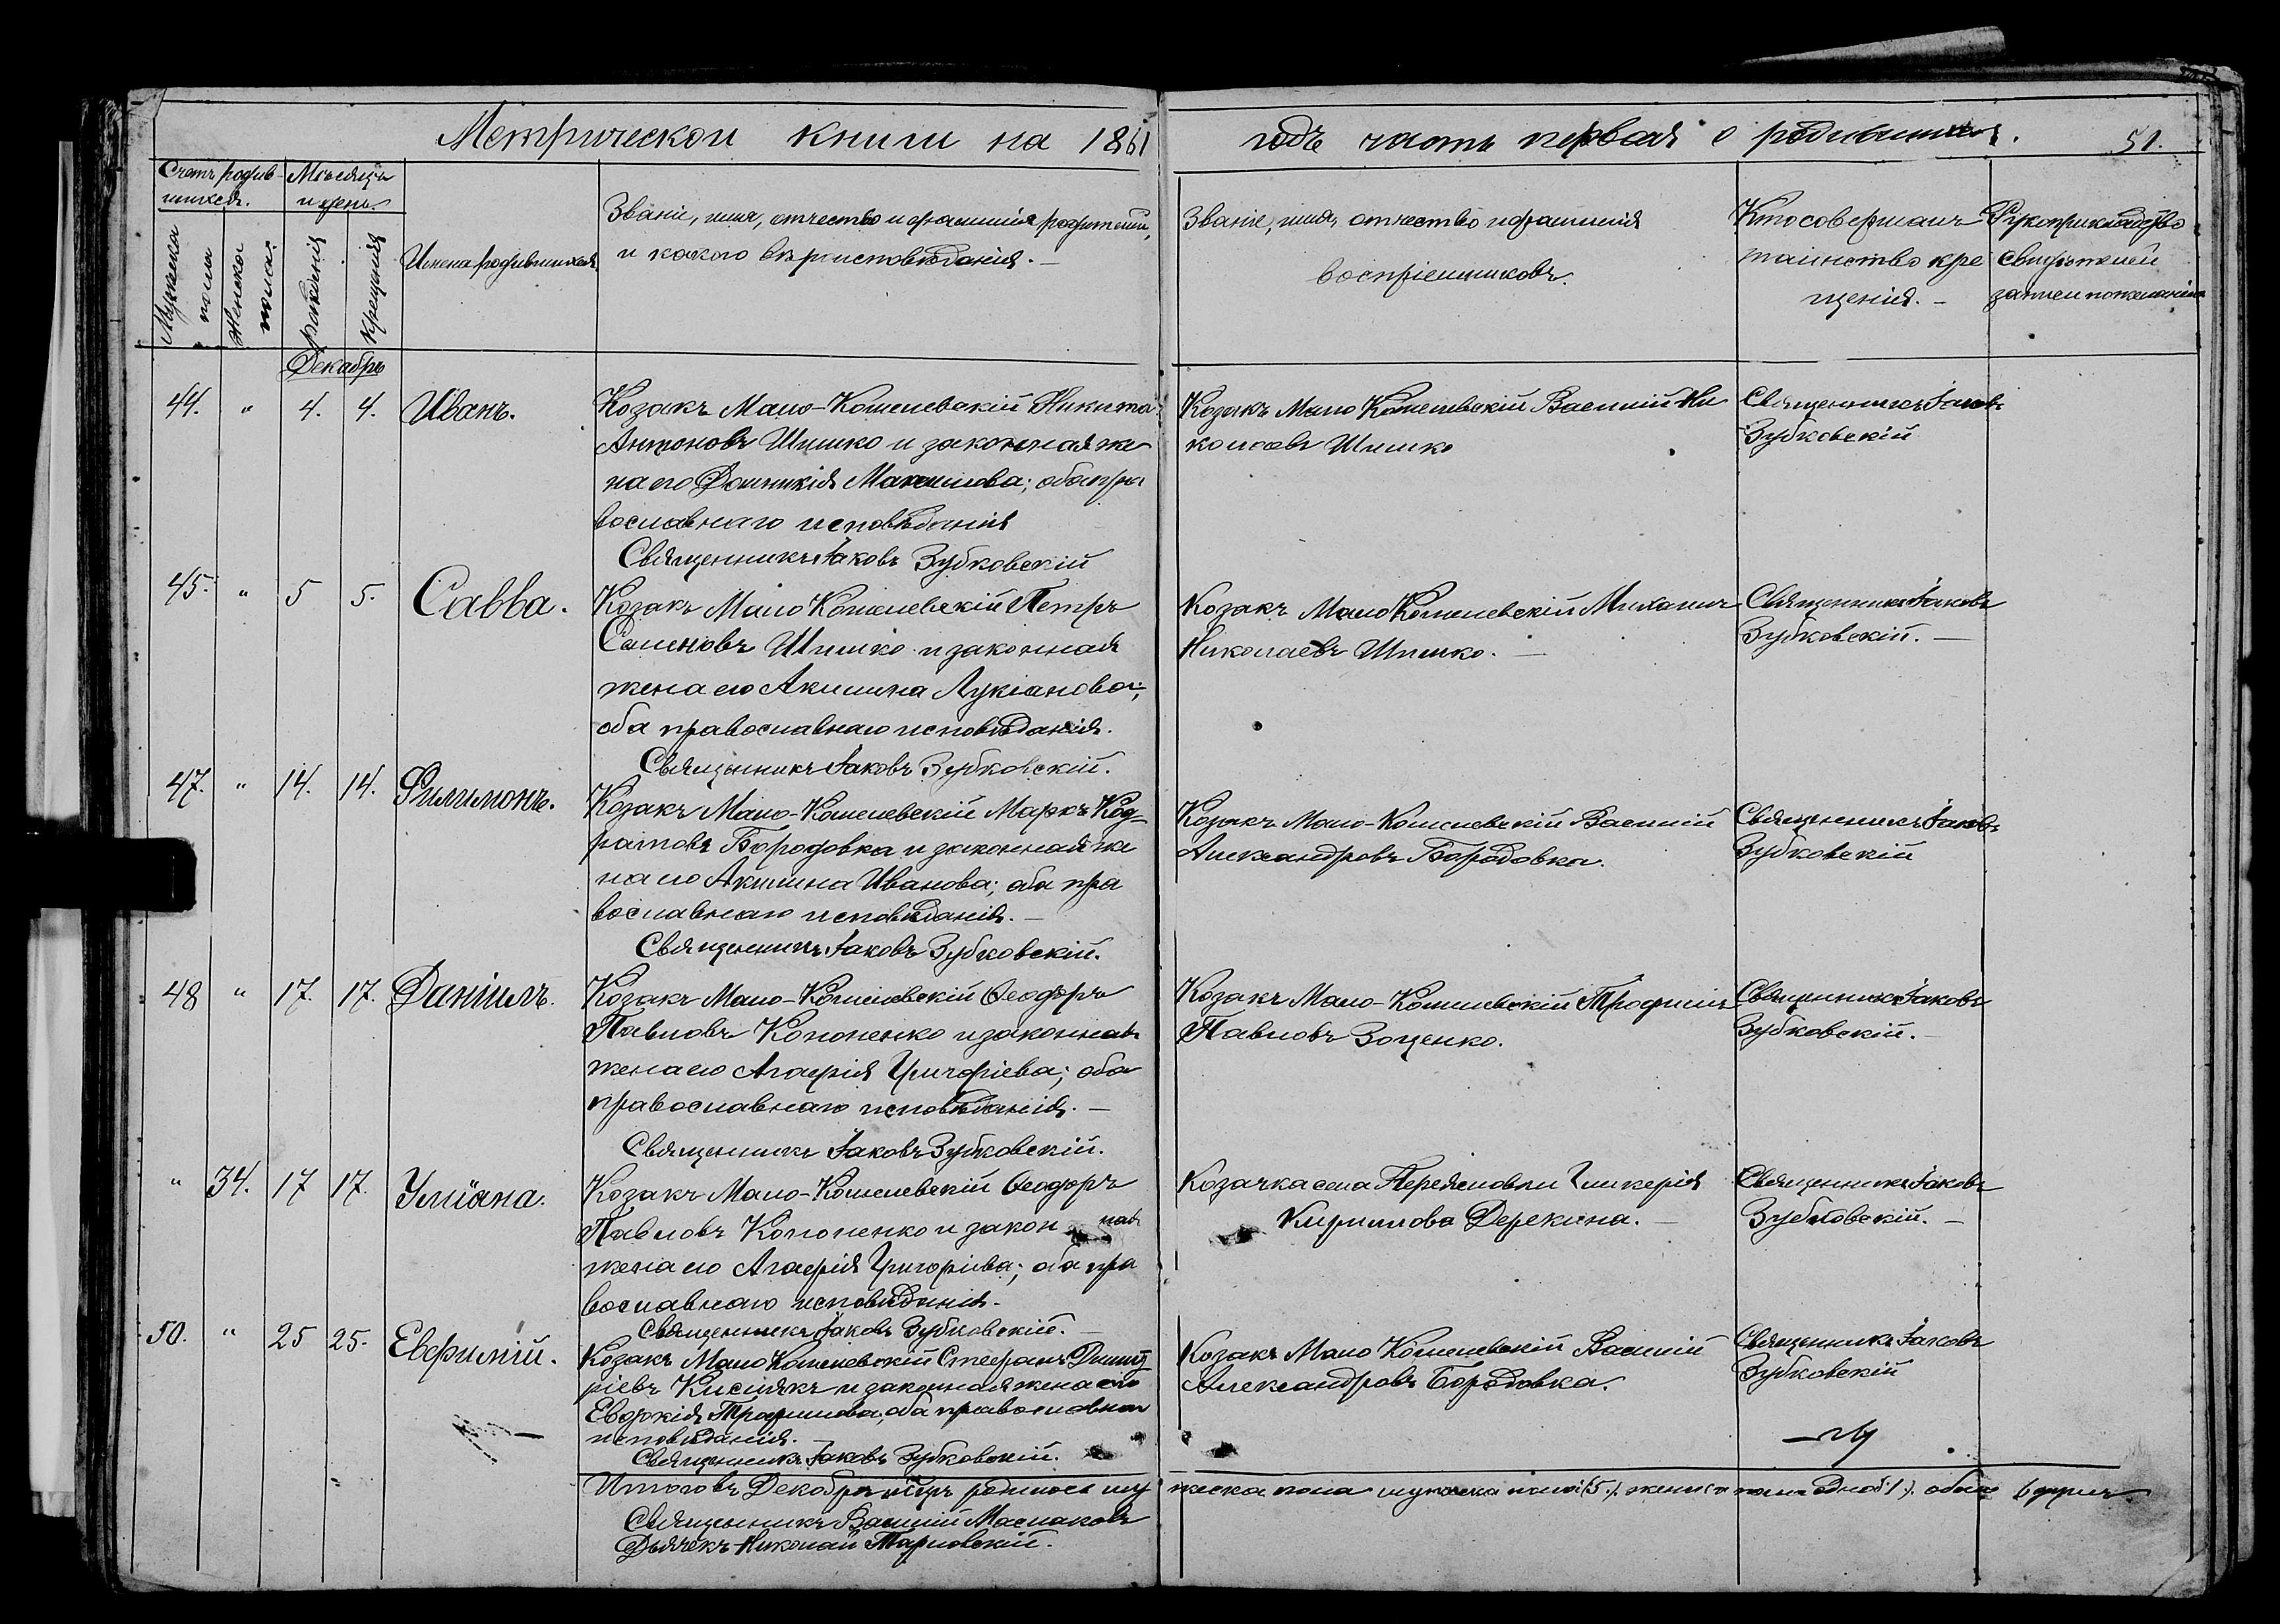 Метрической книги на 1861 годъ часть первая о родившихся. 51.
Счетъ родив-
шихся.
Мѣсяцъ
и день.
Мужеска
пола
Женска
пола.
рожденія
Крещенія
Имена родившихся
Званіе, имя, отчество и фамилія родителей,
и какого вѣроисповѣданія. —
Званіе, имя, отчество и фамилія
воспріемниковъ.
Кто совершалъ
таинство кре
щенія. —
Рукоприкладство
свидѣтелей
записи по желанію
Декабрь
44. " 4. 4. Иванъ.
Козакъ Мало-Кошелевскій Никита
Антоновъ Шишко и законная же
на его Домникія Максимова; оба пра
вославнаго исповѣданія
Священникъ Іаковъ Зубковскій
Козакъ Мало Кошелевскій Василій Ни
колаевъ Шишко
Священникъ Іаковъ
Зубковскій
45. " 5 5. Савва.
Козакъ Мало Кошелевскій Петръ
Семеновъ Шишко и законная
жена его Акилина Лукіанова;
оба православнаго исповѣданія.
Священникъ Іаковъ Зубковскій.
Козакъ Мало Кошелевскій Михаилъ
Николаевъ Шишко. —
Священникъ Іаковъ
Зубковскій. —
47. " 14. 14. Филимонъ.
Козакъ Мало-Кошелевскій Маркъ Код-
ратовъ Бородовка и законная же
на его Акилина Иванова; оба пра
вославнаго исповѣданія. —
Священникъ Іаковъ Зубковскій.
Козакъ Мало-Кошелевскій Василій
Александровъ Бородовка.
Священникъ Іаковъ
Зубковскій
48 " 17. 17. Даніилъ.
Козакъ Мало-Кошелевскій Ѳеодоръ
Павловъ Кононенко и законная
жена его Агафія Григоріева; оба
православнаго исповѣданія. —
Священникъ Іаковъ Зубковскій.
Козакъ Мало-Кошелевскій Трофимъ
Павловъ Зоценко.
Священникъ Іаковъ
Зубковскій. —
" 34. 17 17. Уліана.
Козакъ Мало-Кошелевскій Ѳеодоръ
Павловъ Кононенко и закон ная
жена его Агафія Григоріева; оба пра
вославнаго исповѣданія.
Священникъ Іаковъ Зубковскій. —
Козачка села Гликерія
Кирилова Дерекина. —
Священникъ Іаковъ
Зубковскій. —
50. " 25 25. Евфимій.
Козакъ Мало Кошелевскій Стефанъ Димит
ріевъ Кислякъ и законная жена его
Евдокія Трофимова, оба православнаго
исповѣданія. —
Священникъ Іаковъ Зубковскій.
Козакъ Мало Кошелевскій Василій
Александровъ Бородовка.
Священникъ Іаковъ
Зубковскій
Итого въ Декабрѣ родилось му жеска пола мужеска пола (5.) женска пола одна (1). обоего 6 душъ
Священникъ Василій Маслаковъ
Дьячекъ Николай Тарновскій.